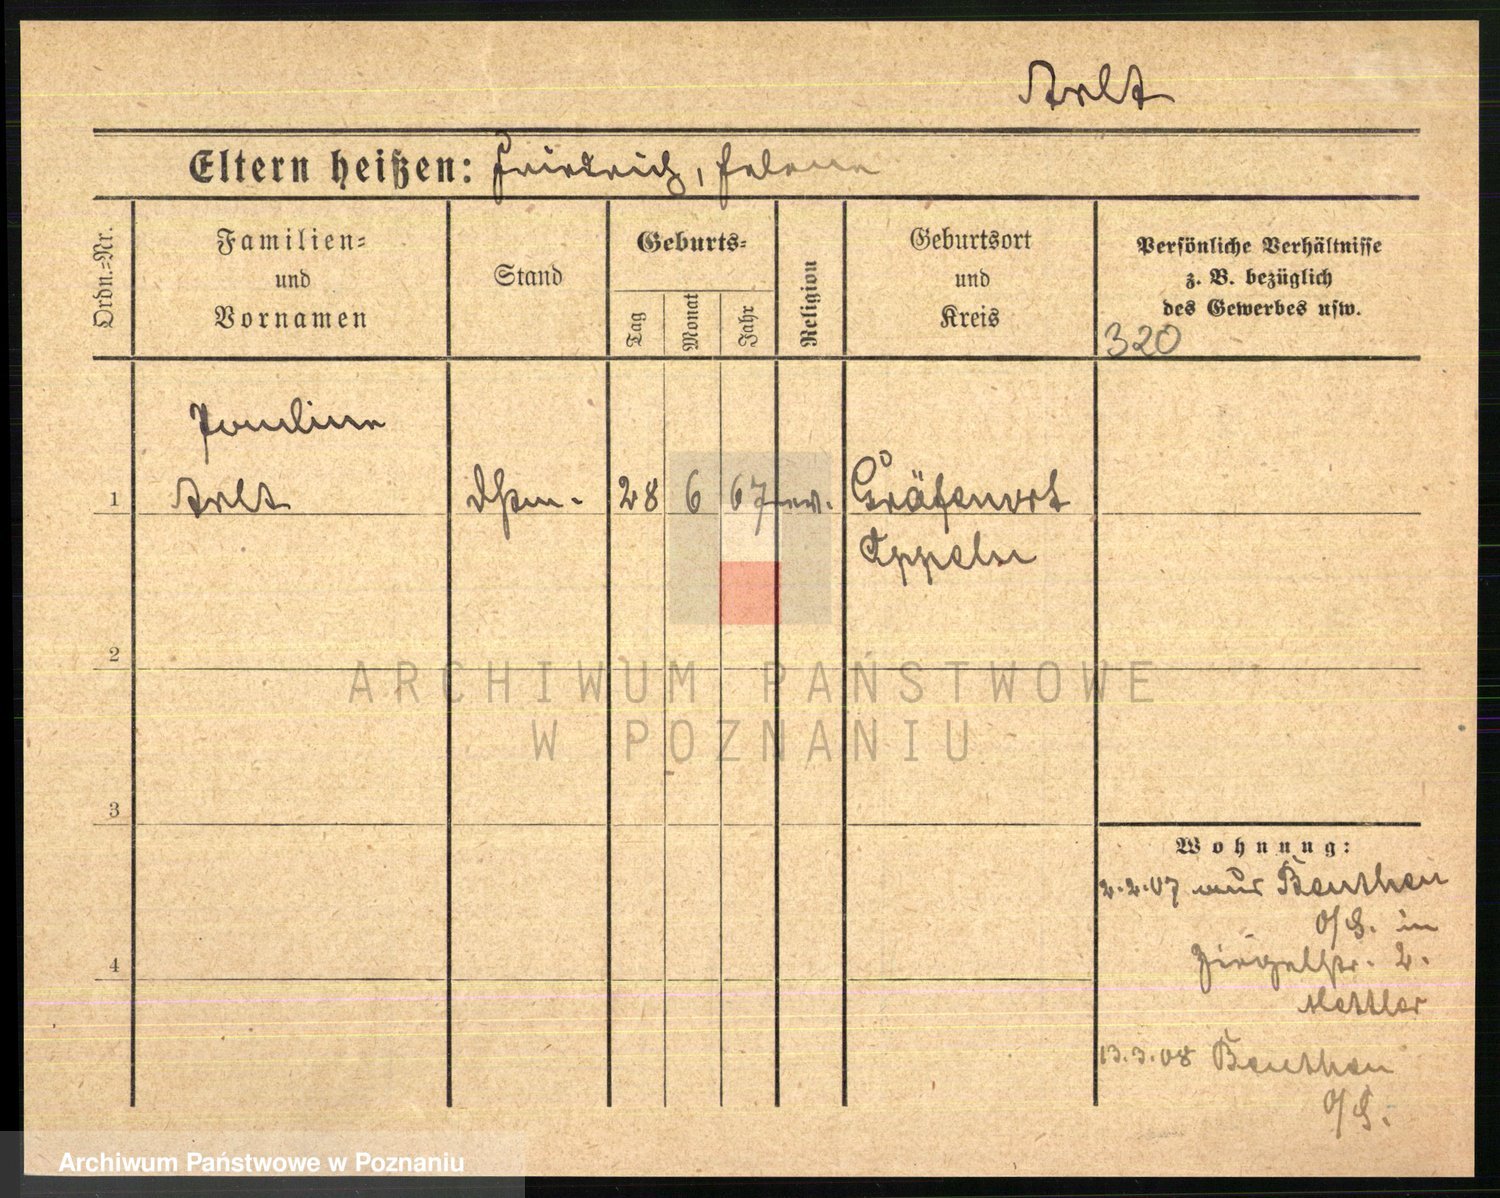 Arlt
Eltern heißen: Friedrich, Helene
Ordn.-Nr.
Familien-
und
Vornamen
Stand
Geburts-
Tag
Monat
Jahr
Religion
Geburtsort
und
Kreis
Persönliche Verhältnisse
z. B. bezüglich
des Gewerbes usw.
320
Pauline
1 Arlt 28 6 67 ev. Gräfenort
Oppeln
2
3
4
Wohnung:
2.2.07 aus Beuthen
O/S. in
Ziegelstr. 2.
13.3.08 Beuthen
O/S.
ARCHIWUM PAŃSTWOWE
W POZNANIU
Archiwum Państwowe w Poznaniu